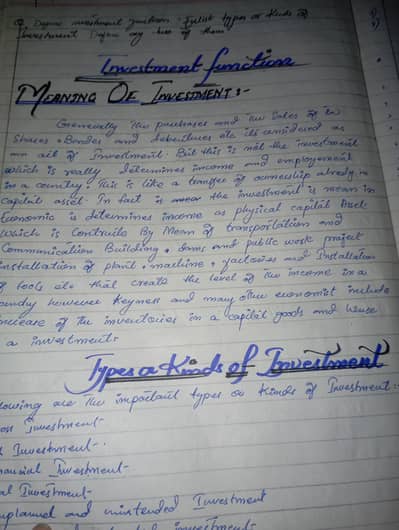 Q Define investment function. Enlist types or Kinds of
Investment Define any two of them
Investment function
MEANING OF INVESTMENT:-
Generally the purchases and the Sales of the
Shares, Bondes and debentures etc its considered as
an act of Investment. But this is not the investment
which is really determines income and employment
in a country. This is like a transfer of ownership already in
capital asset. In fact is the investment is mean in
Economic is determines income as physical capital Asset
which is Contribute By Mean of transportation and
Communication Building, dams and public work project
installation of plant, machine, factories and Installation
of tools etc that create the level of the income in a
however Keynes and many other economist include
increase of the inventories in a capital goods and
a investment
Types or Kinds of Investment
lowing are the important types or Kinds of Investment:-
oss Investment-
t Investment-
nancial Investment-
al Investment-
nplanned and unintended Investment
investment-